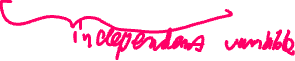 independent variable